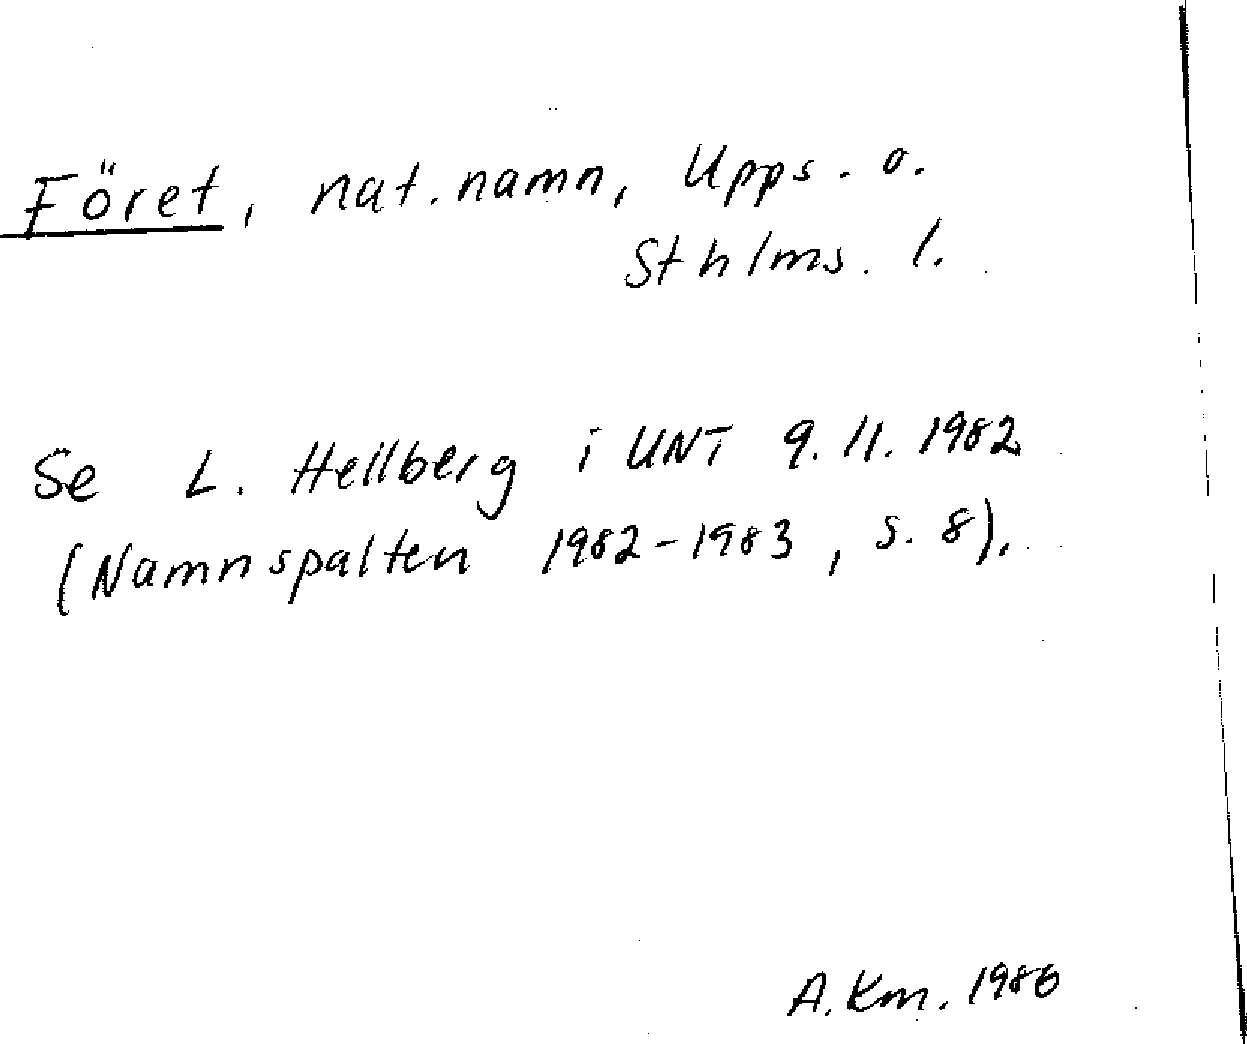 Föret, nat.namn, Upps. o.
Sthlms. l.
Se L. Hellberg i UNT 9.11.1982
(Namnspalten 1982-1983, s. 8).
A.Km. 1986